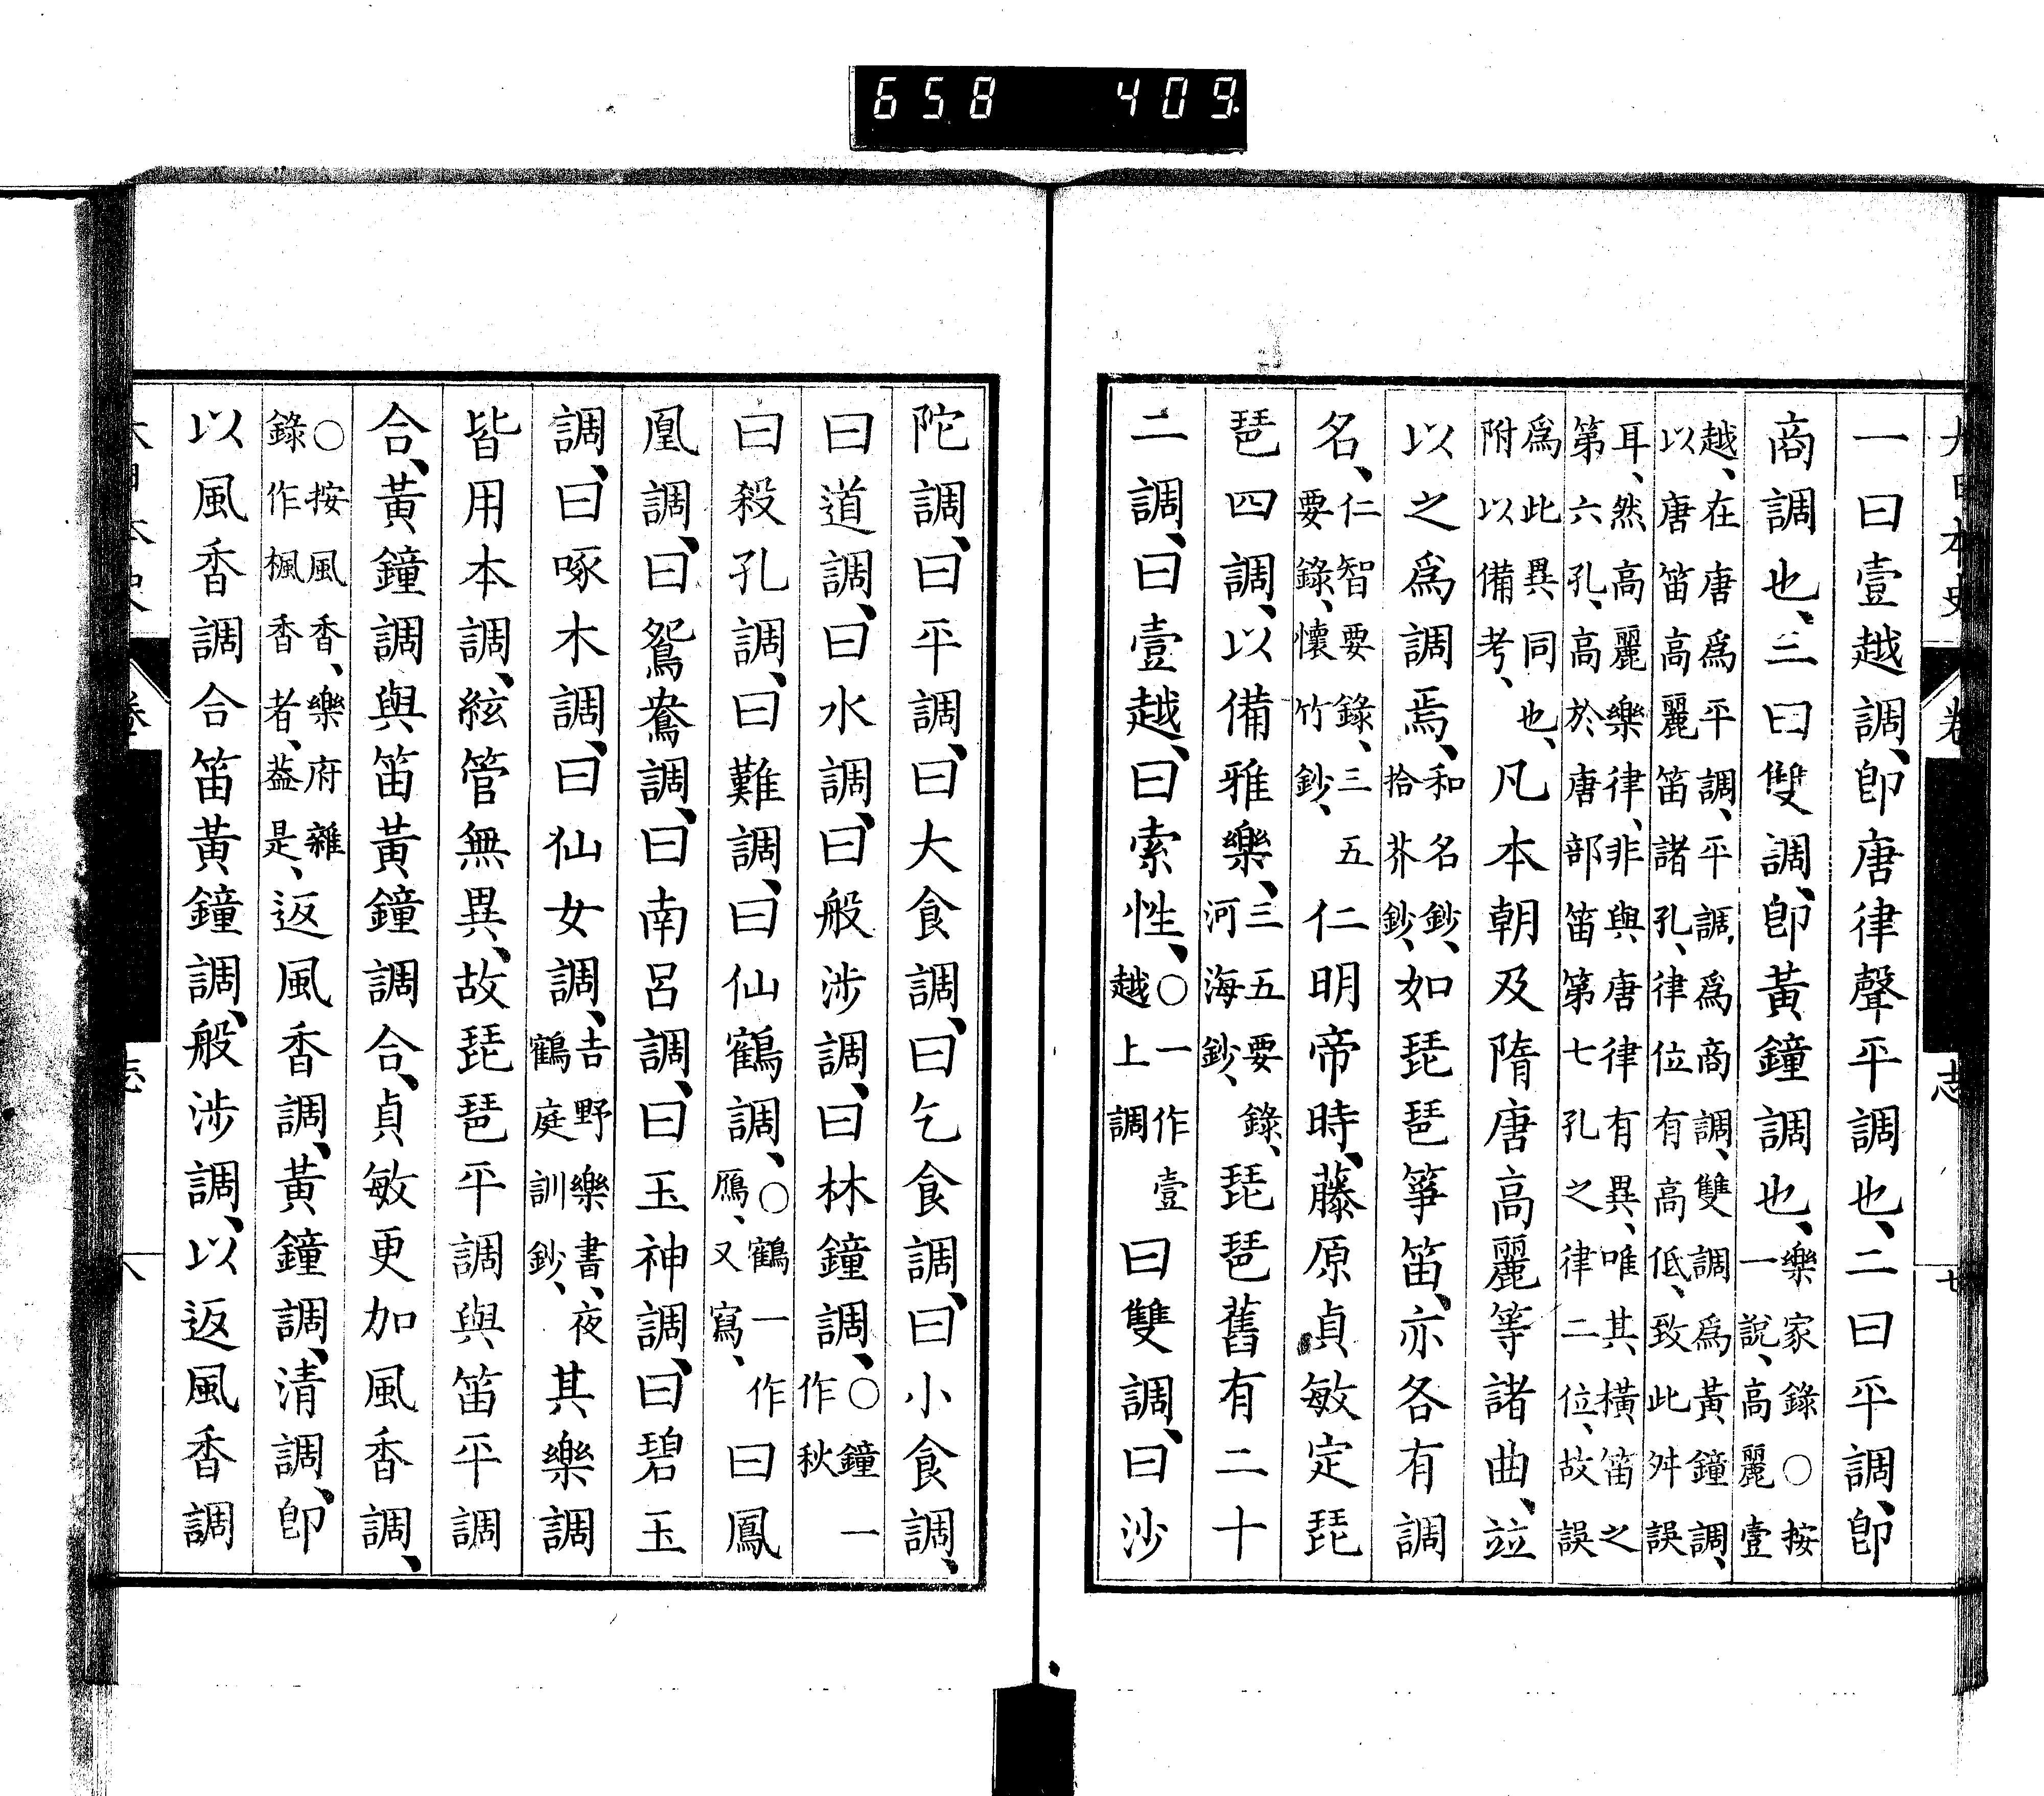 658 409
大日本史 卷 志 七
一曰壹越調、卽唐律聲平調也、二曰平調、卽
商調也、三曰雙調、卽黃鐘調也、樂家錄○按一說、高麗壹
越、在唐爲平調、平調、爲商調、雙調爲黃鐘調、以唐笛高麗笛諸孔、律位有高低、致此舛誤
耳、然高麗樂律、非與唐律有異、唯其橫笛之第六孔、高於唐部笛第七孔之律二位、故誤
爲此異同也、附以備考、凡本朝及隋唐高麗等諸曲、竝
以之爲調焉、和名鈔、拾芥鈔、如琵琶箏笛、亦各有調
名、仁智要錄、三五要錄、懷竹鈔、仁明帝時、藤原貞敏定琵
琶四調、以備雅樂、三五要錄、河海鈔、琵琶舊有二十
二調、曰壹越、曰索性、○一作壹越上調曰雙調、曰沙
陀調、曰平調、曰大食調、曰乞食調、曰小食調、
曰道調、曰水調、曰般涉調、曰林鐘調、○鐘一作秋
曰殺孔調、曰難調、曰仙鶴調、○鶴一作鴈、又寫、曰鳳
凰調、曰鴛鴦調、曰南呂調、曰玉神調、曰碧玉
調、曰啄木調、曰仙女調、吉野樂書、夜鶴庭訓鈔、其樂調
皆用本調、絃管無異、故琵琶平調與笛平調
合、黃鐘調與笛黃鐘調合、貞敏更加風香調、
○按風香、樂府雜錄作楓香者、葢是、返風香調、黃鐘調、清調、卽
以風香調合笛黃鐘調、般涉調、以返風香調